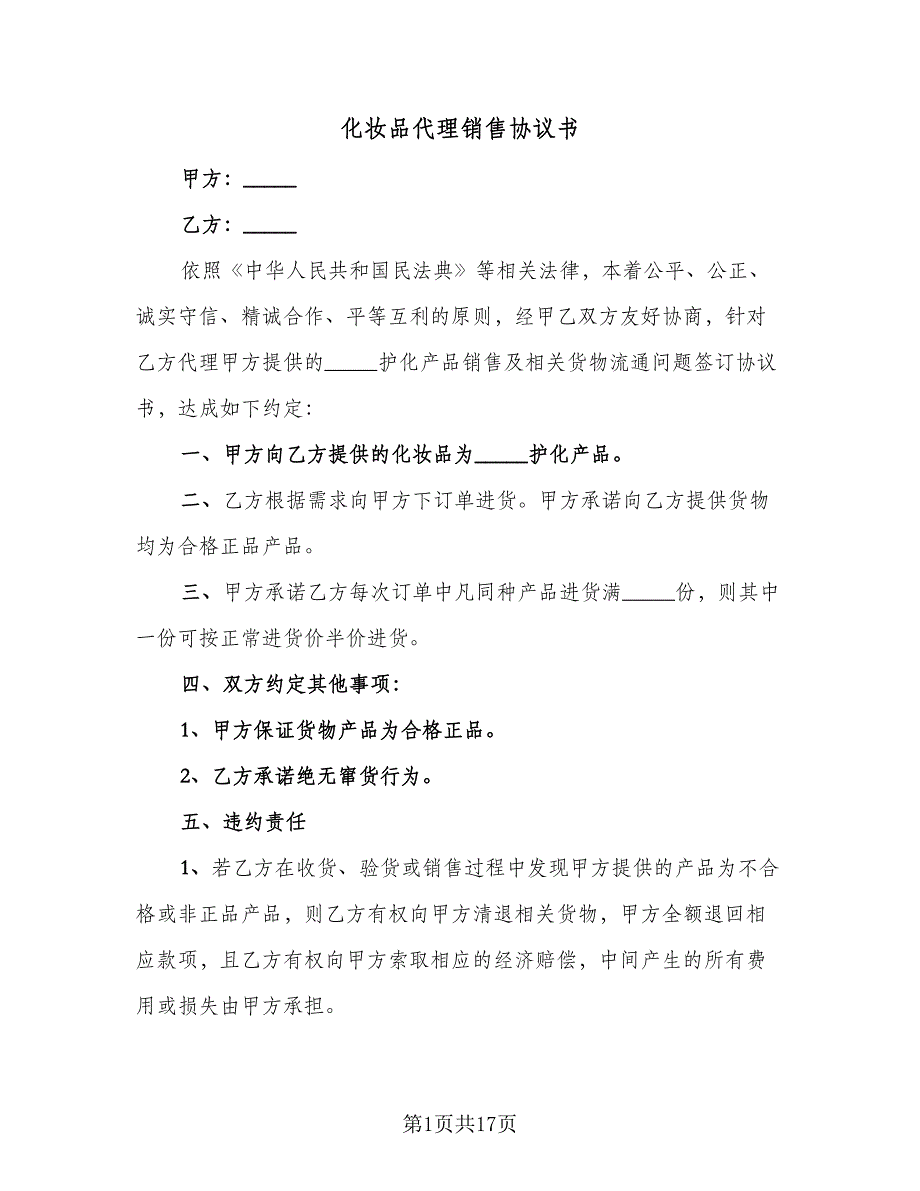 化妆品代理销售协议书
甲方：_____
乙方：_____
依照《中华人民共和国民法典》等相关法律，本着公平、公正、
诚实守信、精诚合作、平等互利的原则，经甲乙双方友好协商，针对
乙方代理甲方提供的_____护化产品销售及相关货物流通问题签订协议
书，达成如下约定：
一、甲方向乙方提供的化妆品为_____护化产品。
二、乙方根据需求向甲方下订单进货。甲方承诺向乙方提供货物
均为合格正品产品。
三、甲方承诺乙方每次订单中凡同种产品进货满_____份，则其中
一份可按正常进货价半价进货。
四、双方约定其他事项：
1、甲方保证货物产品为合格正品。
2、乙方承诺绝无窜货行为。
五、违约责任
1、若乙方在收货、验货或销售过程中发现甲方提供的产品为不合
格或非正品产品，则乙方有权向甲方清退相关货物，甲方全额退回相
应款项，且乙方有权向甲方索取相应的经济赔偿，中间产生的所有费
用或损失由甲方承担。
第1页共17页